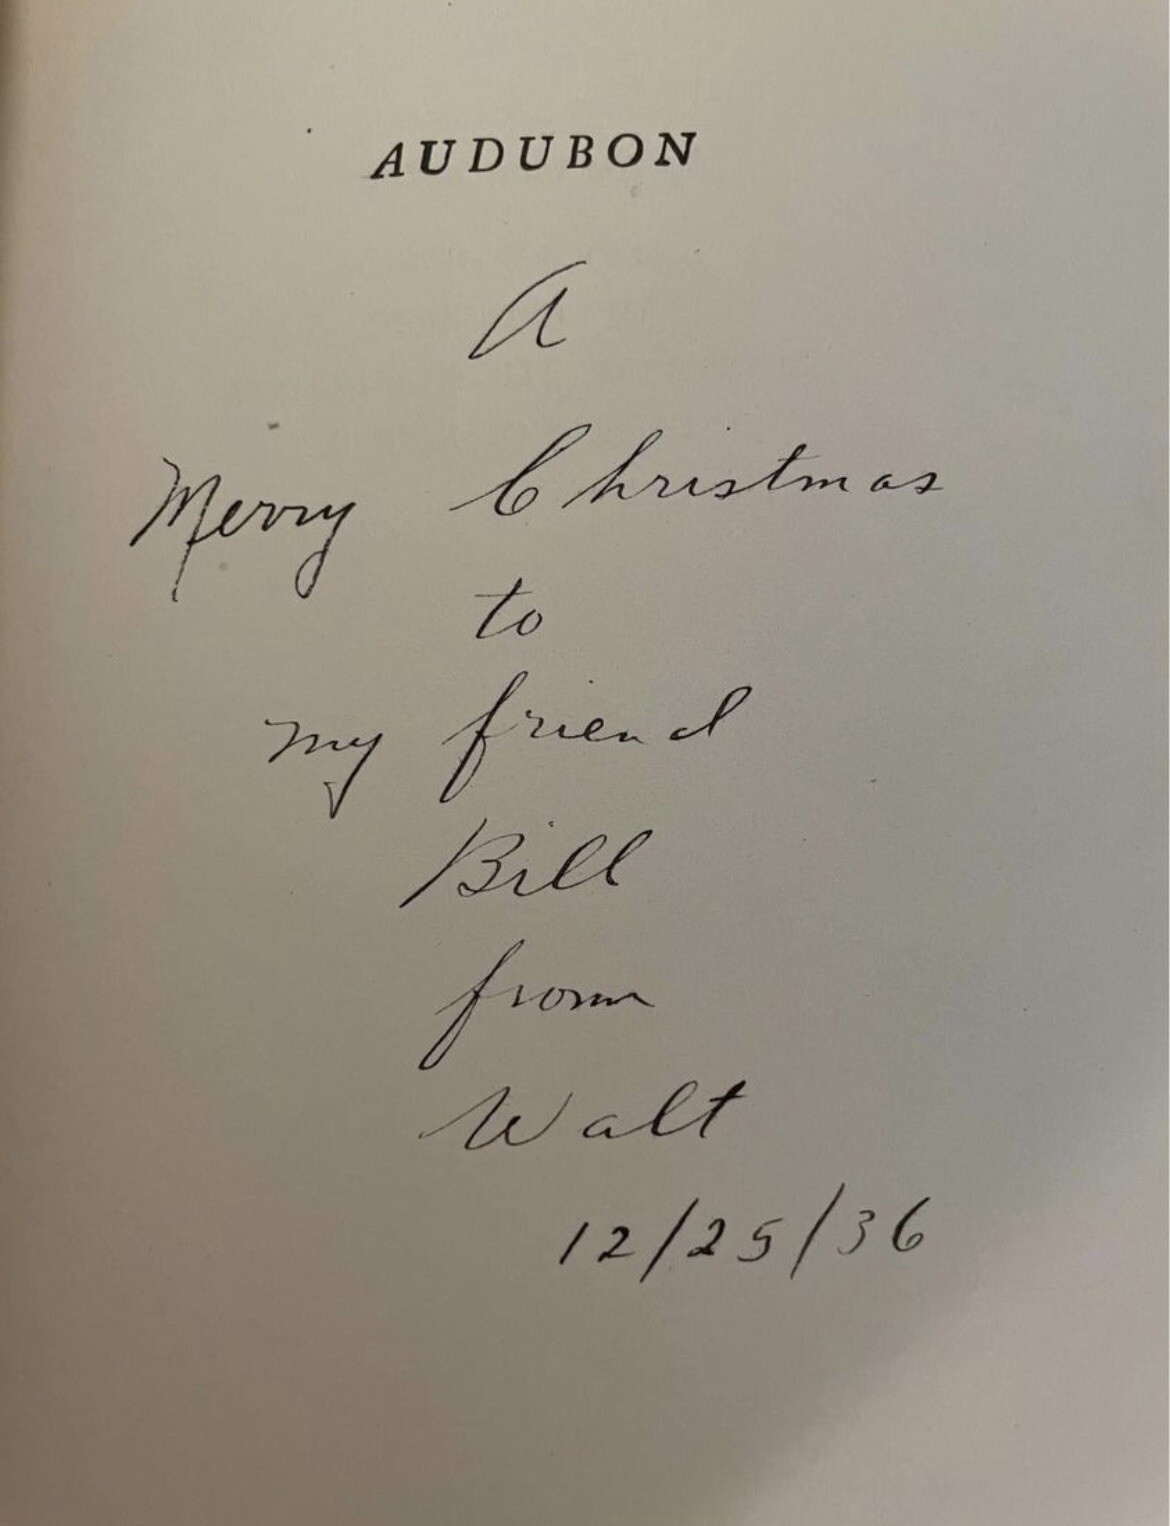 AUDUBON
A
Merry Christmas
to
my friend
Bill
from
Walt
12/25/36